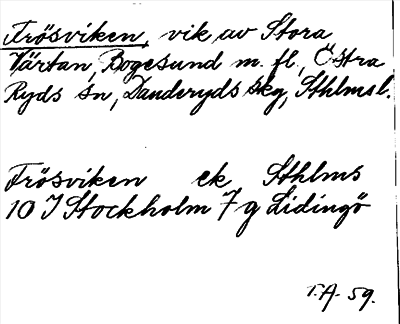 Frösviken, vik av Stora
Värtan, Bogesund m. fl., Östra
Ryds sn, Danderyds skg, Sthlms l.
Frösviken ek Sthlms
10 I Stockholm 7 g Lidingö
T.A. 59.